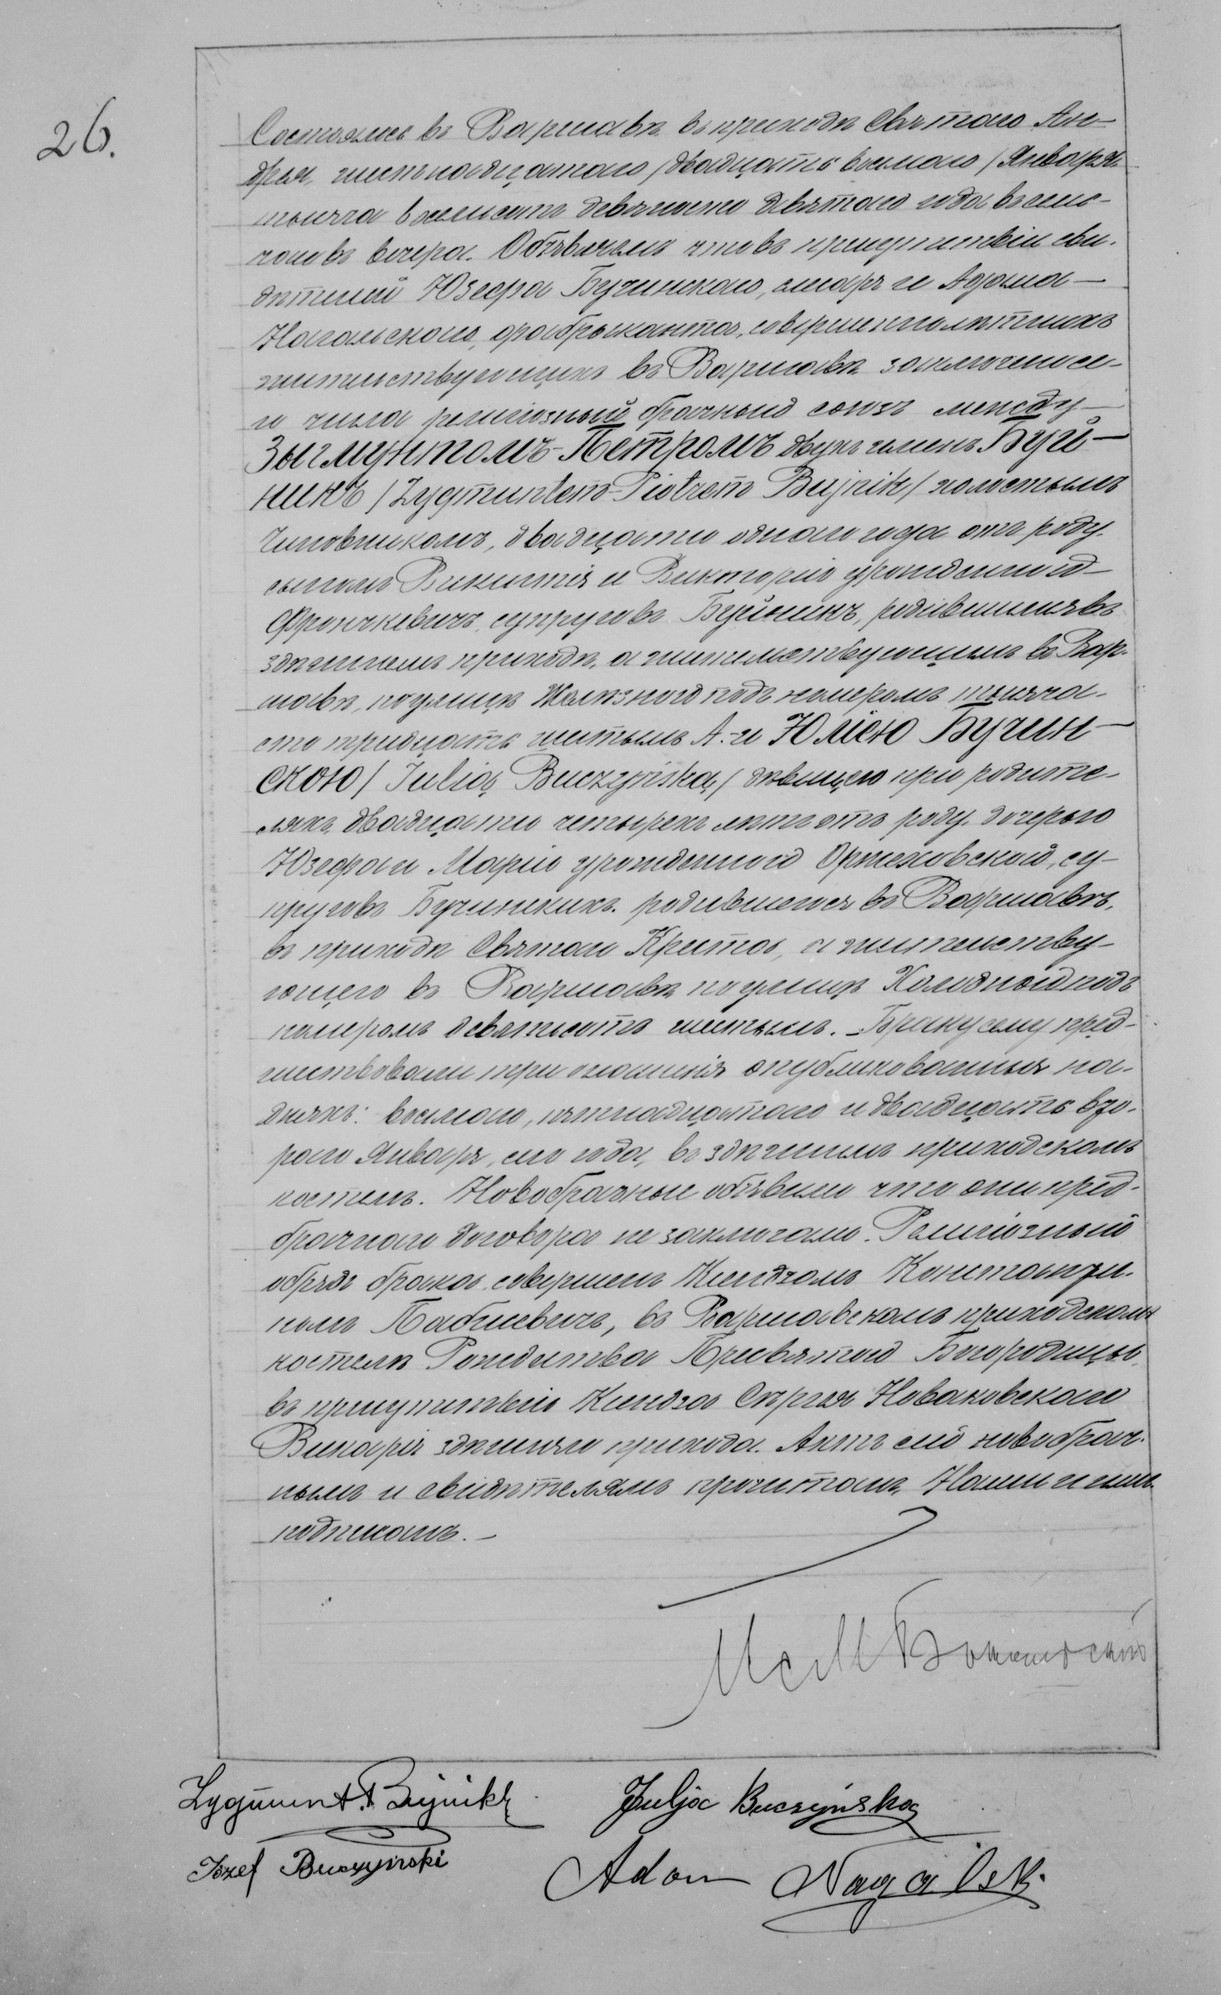 26.
Состоялось въ Варшавѣ въ приходѣ Святаго Ан-
дрея, шестнадцатаго /двадцать восьмаго/ Января
тысяча восемьсотъ девяносто девятаго года въ семь
часовъ вечера. Объявляемъ что въ присутствіи сви-
дѣтелей Юзефа Бучинскаго, столяра и Адама
Нагальскаго, фабриканта, совершеннолѣтнихъ
жительствующихъ въ Варшавѣ заключенъ се-
го числа религіозный брачный союзъ между
Зыгмунтомъ-Петромъ двухъ именъ Буй-
никъ /Zygmuntem-Piotrem Bujnik/ холостымъ
чиновникомъ, двадцати одного года отъ роду
сыномъ Викентія и Викторіи урожденной
супруговъ Буйникъ, родившимся въ
здѣшнемъ приходѣ, а жительствующимъ въ Вар-
шавѣ, по улицѣ Желѣзной подъ номеромъ тысяча
сто тридцать шестымъ А.- и Юліею Бучин-
скою /Julią Buczyńską/ дѣвицею при родите-
ляхъ, двадцати четырехъ лѣтъ отъ роду, дочерью
Юзефа и Маріи урожденной Оржеховской, су-
пруговъ Бучинскихъ, родившеюся въ Варшавѣ,
въ приходѣ Святаго Креста, а жительству-
ющею въ Варшавѣ по улицѣ Холодной подъ
номеромъ девятьсотъ шестымъ. - Браку сему пред-
шествовали три оглашенія опубликованныя въ
дняхъ: восьмаго, пятнадцатаго и двадцать вто-
раго Января, сего года, въ здѣшнемъ приходскомъ
костелѣ. Новобрачные объявили что они пред-
брачнаго договора не заключали. Религіозный
обрядъ брака совершенъ Ксендзомъ Константи-
номъ Пабисевичъ, въ Варшавскомъ приходскомъ
костелѣ Рождества Пресвятой Богородицы,
въ присутствіи Ксендза Сергія Новаковскаго
Викарія здѣшняго прихода. Актъ сей новобрач-
нымъ и свидѣтелямъ прочитанъ, Нами и ими
подписанъ. -
Zygmunt P. Bujnik Julja Buczyńska
Józef Buczyński Adam Nagalski